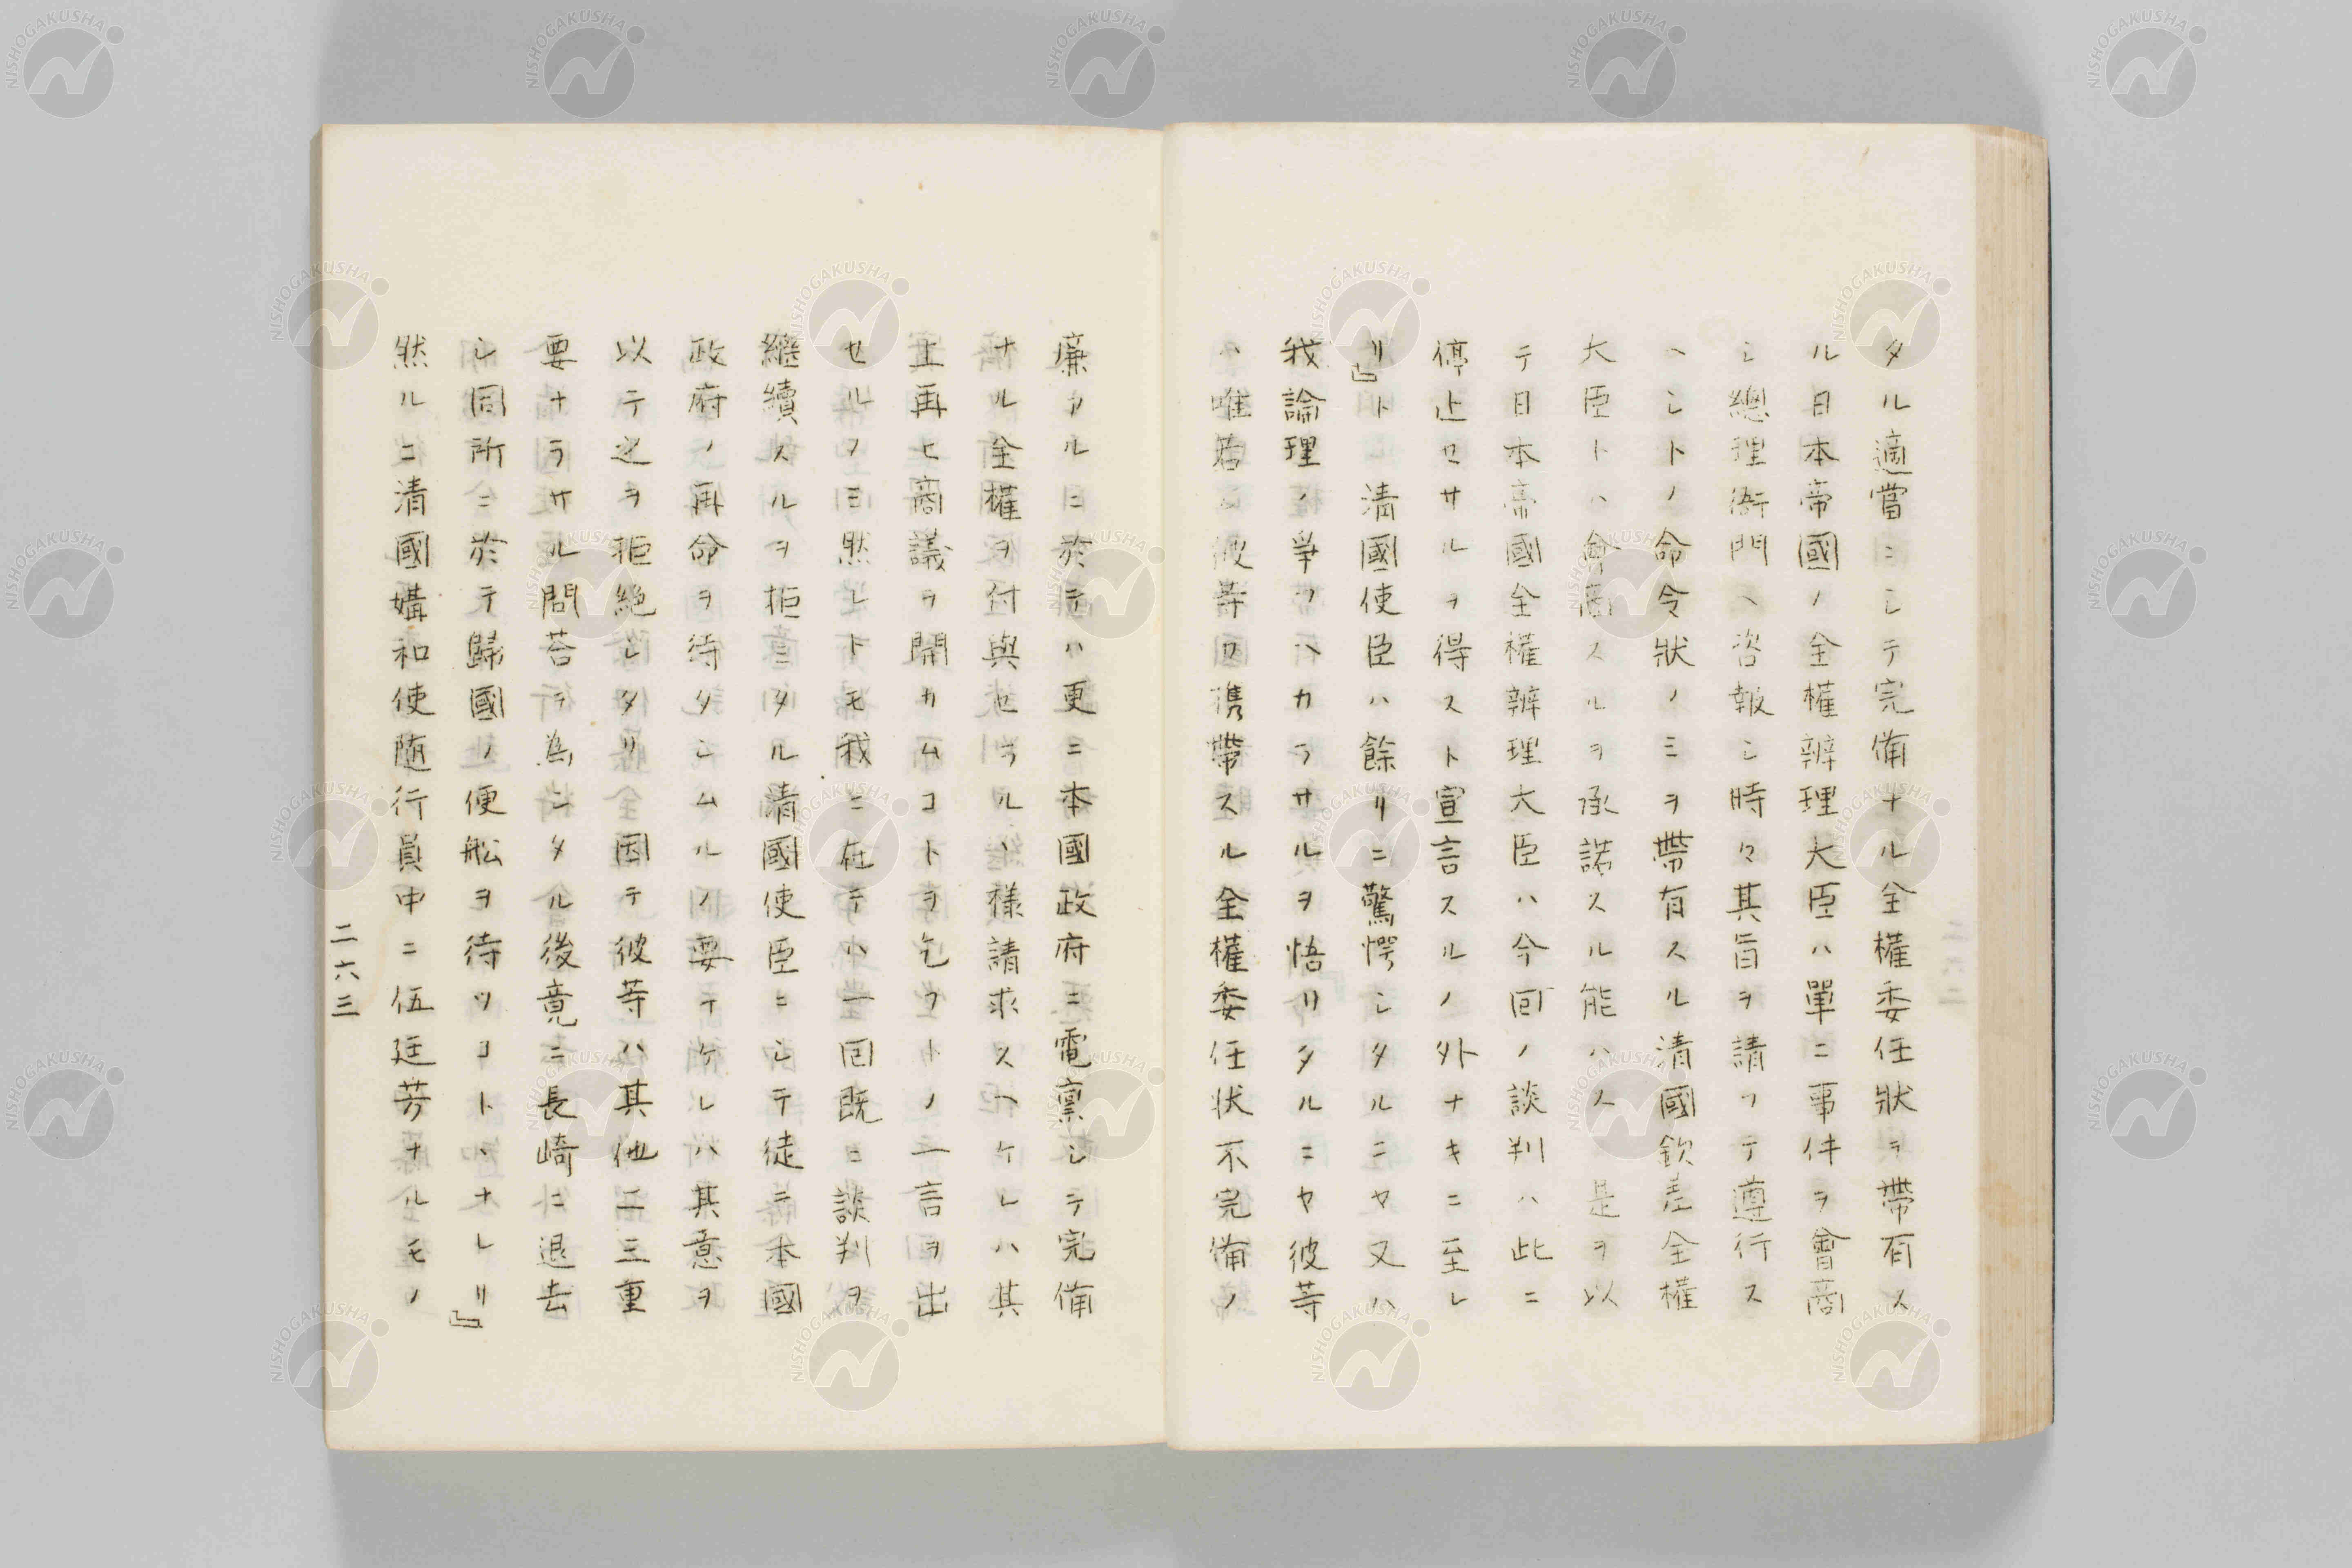 タル適當ニシテ完備ナル全權委任狀ヲ帶有ス
ル日本帝國ノ全權辨理大臣ハ單ニ事件ヲ會商
シ總理衙門ヘ咨報シ時々其旨ヲ請フテ遵行ス
ヘシトノ命令狀ノミヲ帶有スル清國欽差全權
大臣トハ會商スルヲ承諾スル能ハス是ヲ以
テ日本帝國全權辨理大臣ハ今回ノ談判ハ此ニ
停止セサルヲ得スト宣言スルノ外ナキニ至レ
リ』ト清國使臣ハ餘リニ驚愕シタルニヤ又ハ
我論理ノ爭フヘカラサルヲ悟リタルニヤ彼等
ハ唯若シ彼等ワ携帶スル全權委任状不完備ノ
廉アルニ於テハ更ニ本國政府ニ電禀シテ完備
ナル全權ヲ付與セラルヽ樣請求スヘケレハ其
上再ヒ商議ヲ開カムコトヲ乞フトノ一言ヲ出
セルノミ然レトモ我ニ在テハ一回既ニ談判ヲ
繼續スルヲ拒ミタル清國使臣ニシテ徒ニ本國
政府ノ再命ヲ待タシムルノ要ナケレハ其意ヲ
以テ之ヲ拒絶シタリ因テ彼等ハ其他二三重
要ナラサル問荅ヲ為シタル後竟ニ長崎ニ退去
シ同所ニ於テ歸國ノ便船ヲ待ツコトヽナレリ』
然ルニ清國媾和使随行員中ニ伍廷芳ナルモノ
二六三
NISHOGAKUSHA